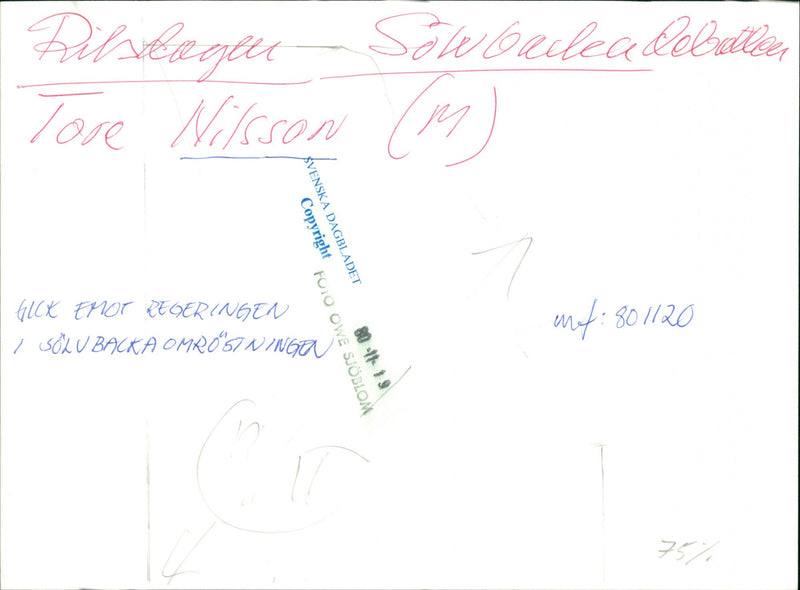 Riksdagen Sölvbackadebatten
Tore Nilsson (M)
SVENSKA DAGBLADET
Copyright
FOTO OWE SJÖBLOM
80 -11- 19
GICK EMOT REGERINGEN
I SÖLVBACKAOMRÖSTNINGEN
inf: 801120
75%